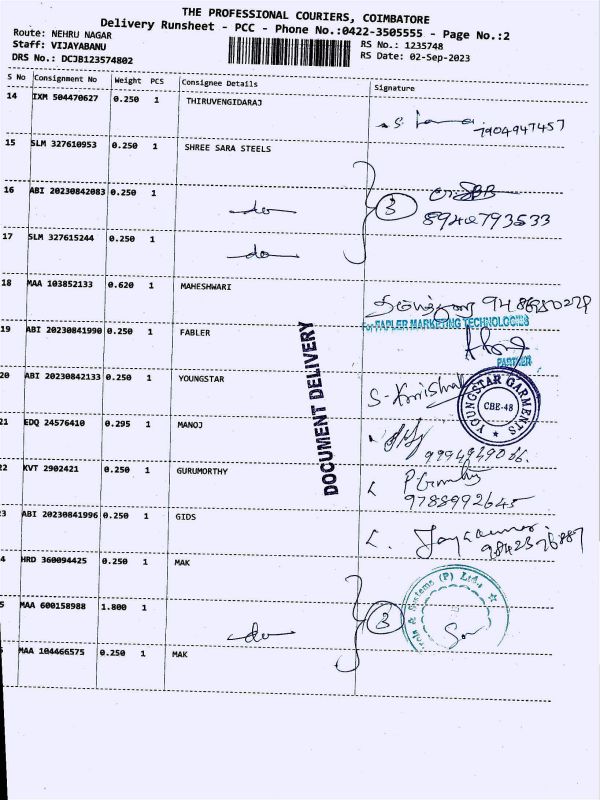 THE PROFESSIONAL COURIERS, COIMBATORE
Delivery Runsheet - PCC - Phone No.:0422-3505555 - Page No.:2
Route: NEHRU NAGAR
Staff: VIJAYABANU
DRS No.: DCJB123574802
RS No.: 1235748
RS Date: 02-Sep-2023
S No Consignment No Weight PCS Consignee Details Signature
14 IXM 504470627 0.250 1 THIRUVENGIDARAJ
7904947457
15 SLM 327610953 0.250 1 SHREE SARA STEELS
16 ABI 20230842083 0.250 1 do 3
8940793533
17 SLM 327615244 0.250 1 do
18 MAA 103852133 0.620 1 MAHESHWARI
For FAPLER MARKETING TECHNOLOGIES
19 ABI 20230841990 0.250 1 FABLER
PARTNER
20 ABI 20230842133 0.250 1 YOUNGSTAR
YOUNGSTAR GARMENTS
CBE-48
21 EDQ 24576410 0.295 1 MANOJ
DOCUMENT DELIVERY
22 KVT 2902421 0.250 1 GURUMORTHY
9788992645
3 ABI 20230841996 0.250 1 GIDS
4 HRD 360094425 0.250 1 MAK
Systems (P) Ltd.,
5 MAA 600158988 1.800 1 do 3
MAA 104466575 0.250 1 MAK